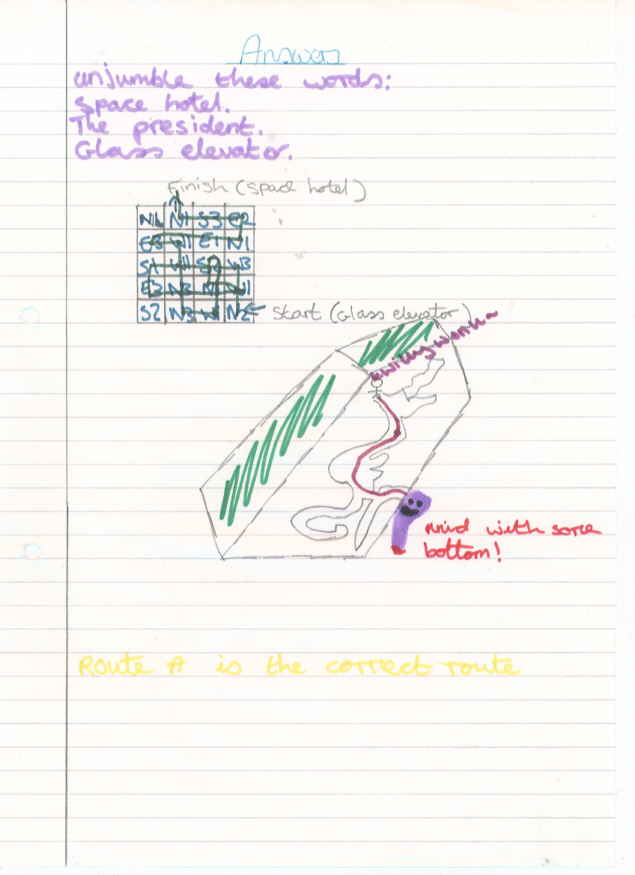 Answers
unjumble these words:
space hotel.
The president.
Glass elevator.
Finish (space hotel)
N1 S3 E2
E3 W1 E1 N1
S1 W3
E2 N3 W1
S2 N3 W1 N2
Start (Glass elevator)
willy wonka
knid with sore
bottom!
ROUTE A is the correct route